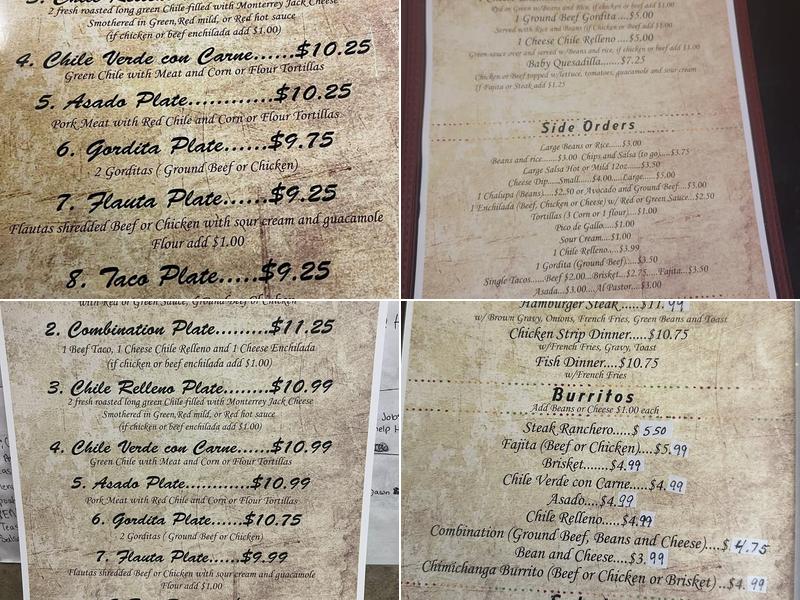 3. Chile Relleno
2 fresh roasted long green Chile filled with Monterrey Jack Cheese
Smothered in Green, Red mild, or Red hot sauce
(if chicken or beef enchilada add $1.00)
4. Chile Verde con Carne......$10.25
Green Chile with Meat and Corn or Flour Tortillas
5. Asado Plate............$10.25
Pork Meat with Red Chile and Corn or Flour Tortillas
6. Gordita Plate......$9.75
2 Gorditas ( Ground Beef or Chicken)
7. Flauta Plate......$9.25
Flautas shredded Beef or Chicken with sour cream and guacamole
Flour add $1.00
8. Taco Plate.....$9.25
Red or Green w/Beans and Rice, if chicken or beef add $1.00
1 Ground Beef Gordita....$5.00
Served with Rice and Beans (if Chicken or Steak add $1.00
1 Cheese Chile Relleno....$5.00
Green sauce over and served w/Beans and rice, if chicken or beef add $1.00
Baby Quesadilla.......$7.25
Chicken or Beef topped w/lettuce, tomatoes, guacamole and sour cream
If Fajita or Steak add $1.25
Side Orders
Large Beans or Rice....$3.00
Beans and rice.......$3.00 Chips and Salsa (to go)....$3.75
Large Salsa Hot or Mild 12oz.....$3.50
Cheese Dip....Small.....$4.00....Large.....$5.00
1 Chalupa (Beans)....$2.50 or Avocado and Ground Beef....$5.00
1 Enchilada (Beef, Chicken or Cheese) w/ Red or Green Sauce..$2.50
Tortillas (3 Corn or 1 flour)....$1.00
Pico de Gallo.....$1.00
Sour Cream....$1.00
1 Chile Relleno....$3.99
1 Gordita (Ground Beef)....$3.50
Single Tacos......Beef $2.00...Brisket...$2.75.....Fajita...$3.50
Asada...$3.00....Al Pastor....$3.00
with Red or Green Sauce, Ground Beef or Chicken
2. Combination Plate...$11.25
1 Beef Taco, 1 Cheese Chile Relleno and 1 Cheese Enchilada
(if chicken or beef enchilada add $1.00)
3. Chile Relleno Plate....$10.99
2 fresh roasted long green Chile filled with Monterrey Jack Cheese
Smothered in Green, Red mild, or Red hot sauce
(if chicken or beef enchilada add $1.00)
4. Chile Verde con Carne......$10.99
Green Chile with Meat and Corn or Flour Tortillas
5. Asado Plate............$10.99
Pork Meat with Red Chile and Corn or Flour Tortillas
6. Gordita Plate......$10.75
2 Gorditas ( Ground Beef or Chicken)
7. Flauta Plate......$9.99
Flautas shredded Beef or Chicken with sour cream and guacamole
Flour add $1.00
Hamburger Steak .....$11.99
w/ Brown Gravy, Onions, French Fries, Green Beans and Toast
Chicken Strip Dinner.....$10.75
w/French Fries, Gravy, Toast
Fish Dinner....$10.75
w/French Fries
Burritos
Add Beans or Cheese $1.00 each
Steak Ranchero.....$ 5.50
Fajita (Beef or Chicken)....$5.99
Brisket.......$4.99
Chile Verde con Carne....$4.99
Asado....$4.99
Chile Relleno....$4.99
Combination (Ground Beef, Beans and Cheese)....$ 4.75
Bean and Cheese....$3.99
Chimichanga Burrito (Beef or Chicken or Brisket) ..$4.99